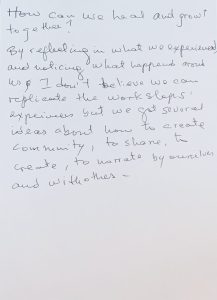 How can we heal and grow
together?
By reflecting in what we experienced
and noticing what happens around
us. I don't believe we can
replicate the workshops'
experiences but we got several
ideas about how to create
community, to share, to
create, to narrate by ourselves
and with others -